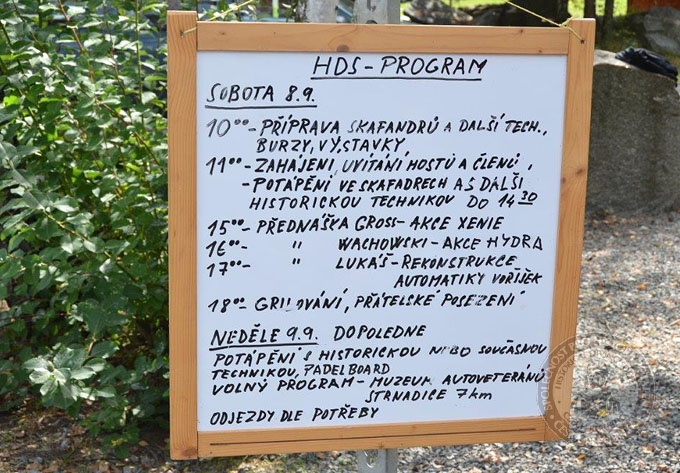 HDS - PROGRAM
SOBOTA 8.9.
10⁰⁰ - PŘÍPRAVA SKAFANDRŮ A DALŠÍ TECH.,
BURZY, VÝSTAVKY
11⁰⁰ - ZAHÁJENÍ, UVÍTÁNÍ HOSTŮ A ČLENŮ,
- POTÁPĚNÍ VE SKAFADRECH A S DALŠÍ
HISTORICKOU TECHNIKOU DO 14³⁰
15⁰⁰ - PŘEDNÁŠKA GROSS - AKCE XENIE
16⁰⁰ - " WACHOWSKI - AKCE HYDRA
17⁰⁰ - " LUKÁŠ - REKONSTRUKCE
AUTOMATIKY VOŘÍŠEK
18⁰⁰ - GRILOVÁNÍ, PŘÁTELSKÉ POSEZENÍ
NEDĚLE 9.9. DOPOLEDNE
POTÁPĚNÍ S HISTORICKOU NEBO SOUČASNOU
TECHNIKOU, PADELBOARD
VOLNÝ PROGRAM - MUZEUM AUTOVETERÁNŮ
STRNADICE 7km
ODJEZDY DLE POTŘEBY